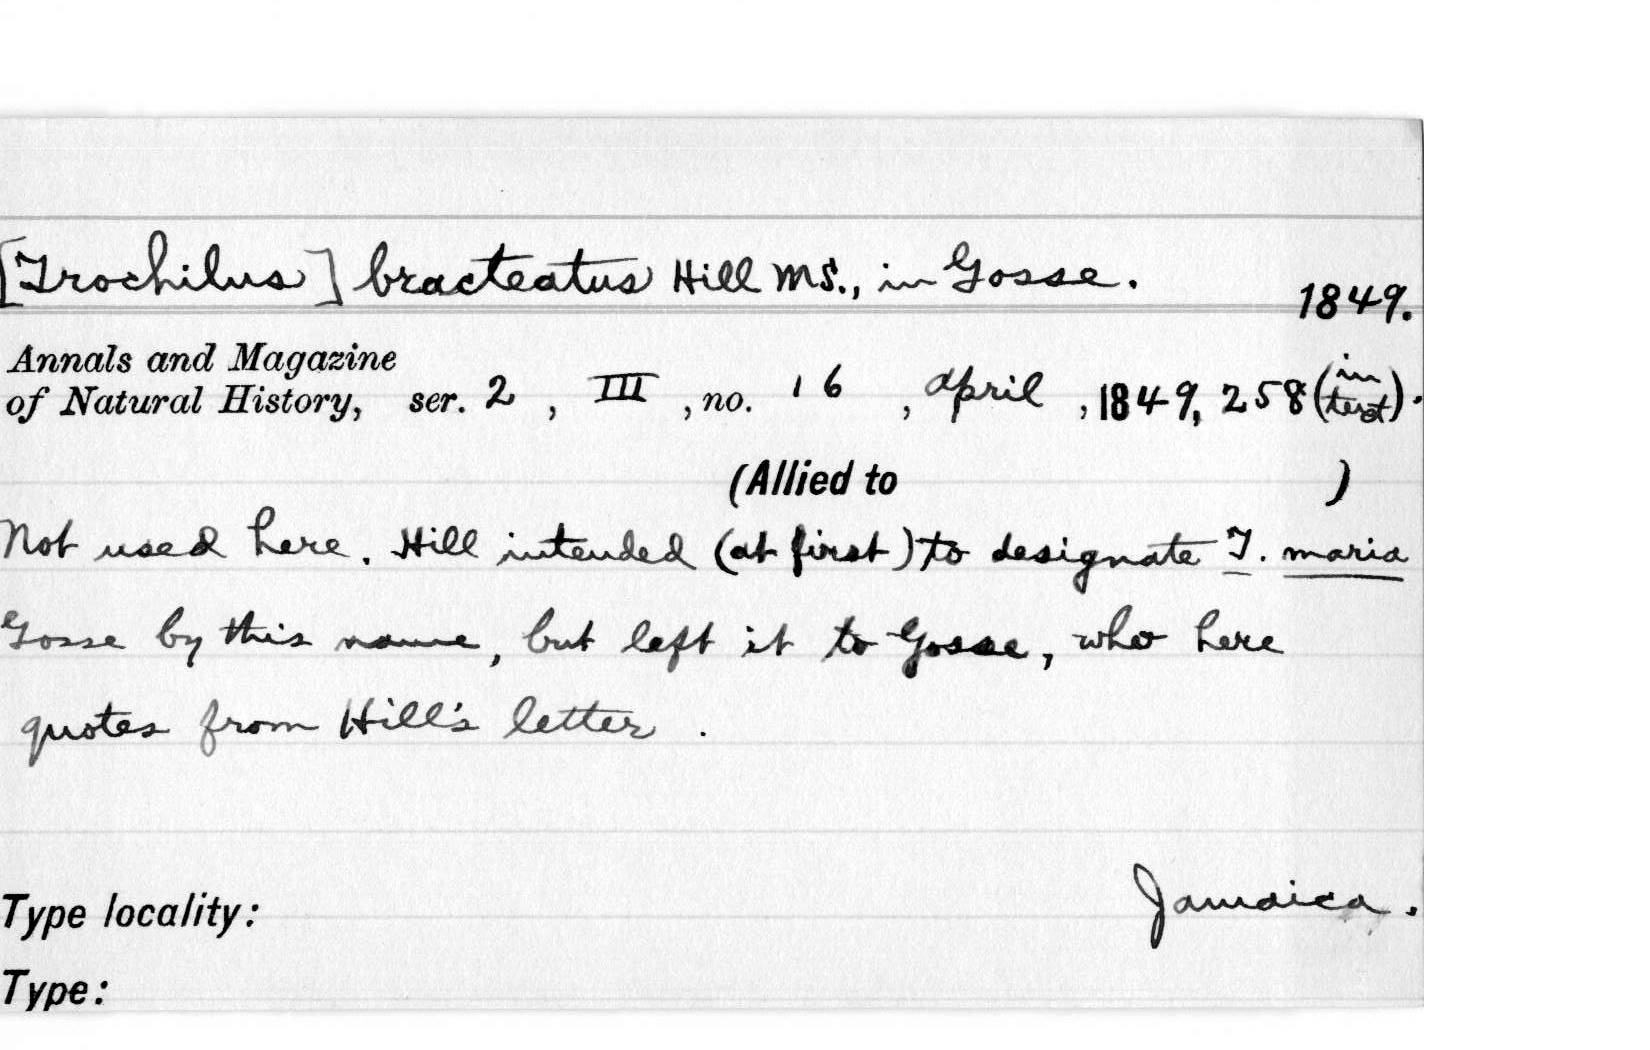 [Trochilus] bracteatus Hill MS., in Gosse.
1849.
Annals and Magazine
of Natural History, ser. 2, III, no. 16, April, 1849, 258 (in text).
(Allied to )
Not used here. Hill intended (at first) to designate T. maria
Gosse by this name, but left it to Gosse, who here
quotes from Hill's letter.
Type locality: Jamaica.
Type: